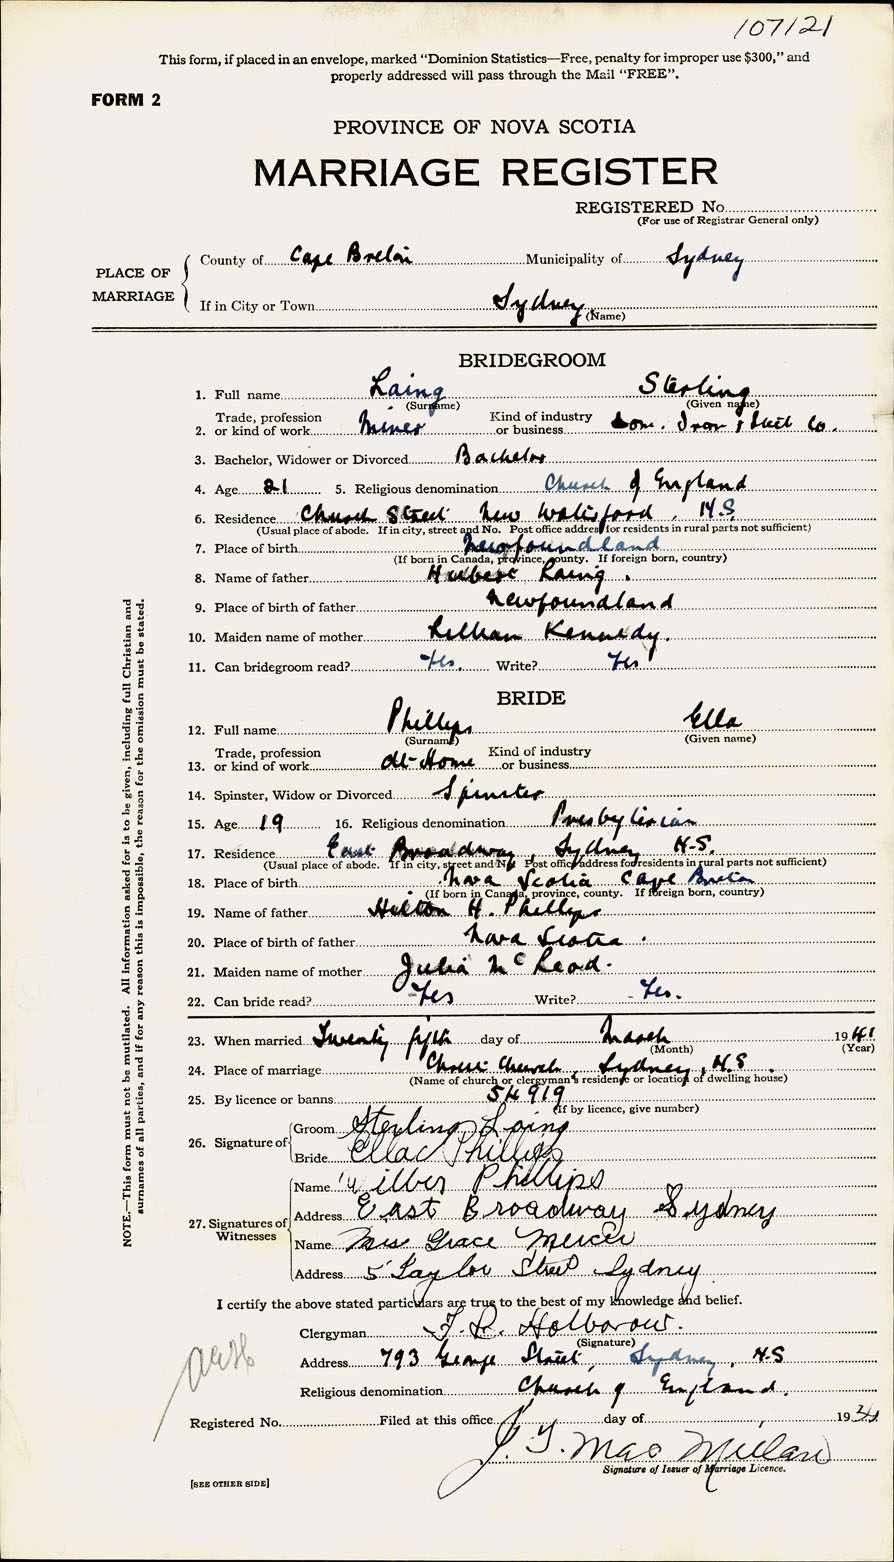 107121
This form, if placed in an envelope, marked “Dominion Statistics—Free, penalty for improper use $300,” and
properly addressed will pass through the Mail “FREE”.
FORM 2
PROVINCE OF NOVA SCOTIA
MARRIAGE REGISTER
REGISTERED No.
(For use of Registrar General only)
PLACE OF MARRIAGE
County of Cape Breton Municipality of Sydney
If in City or Town Sydney
(Name)
BRIDEGROOM
1. Full name Laing Sterling
(Surname) (Given name)
2. Trade, profession or kind of work Miner Kind of industry or business Dom. Iron & Steel Co.
3. Bachelor, Widower or Divorced Bachelor
4. Age 21 5. Religious denomination Church of England
6. Residence Church Street New Waterford, N.S.
(Usual place of abode. If in city, street and No. Post office address for residents in rural parts not sufficient)
7. Place of birth Newfoundland
(If born in Canada, province, county. If foreign born, country)
8. Name of father Hubert Laing.
9. Place of birth of father Newfoundland
10. Maiden name of mother Lillian Kennedy.
11. Can bridegroom read? Yes. Write? Yes
BRIDE
12. Full name Phillips Ella
(Surname) (Given name)
13. Trade, profession or kind of work At-Home Kind of industry or business
14. Spinster, Widow or Divorced Spinster
15. Age 19 16. Religious denomination Presbyterian
17. Residence East Broadway, Sydney N.S.
(Usual place of abode. If in city, street and No. Post office address for residents in rural parts not sufficient)
18. Place of birth Nova Scotia Cape Breton
(If born in Canada, province, county. If foreign born, country)
19. Name of father Hilton H. Phillips
20. Place of birth of father Nova Scotia.
21. Maiden name of mother Julia McLeod.
22. Can bride read? Yes Write? Yes.
23. When married Twenty fifth day of March 1941
(Month) (Year)
24. Place of marriage Christ Church, Sydney, N.S.
(Name of church or clergyman's residence or location of dwelling house)
25. By licence or banns 54919
(If by licence, give number)
26. Signature of
Groom Sterling Laing
Bride Ella Phillips
27. Signatures of Witnesses
Name Wilber Phillips
Address East Broadway Sydney
Name Miss Grace Mercer
Address 5 Taylor Street Sydney
I certify the above stated particulars are true to the best of my knowledge and belief.
Clergyman T. L. Holborow.
(Signature)
Address 793 George Street, Sydney, N.S
Religious denomination Church of England.
Registered No. Filed at this office day of 19
J. G. Mac
Signature of Issuer of Marriage Licence.
[SEE OTHER SIDE]
NOTE.—This form must not be mutilated. All Information asked for is to be given, including full Christian and
surnames of all parties, and if for any reason this is impossible, the reason for the omission must be stated.